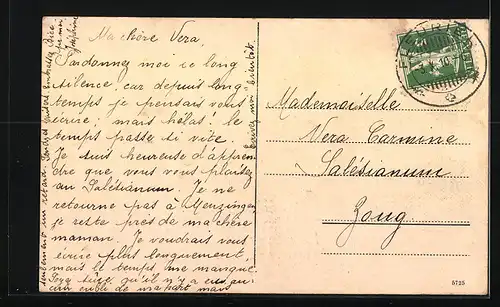 Ma chère Vera,
Pardonnez moi ce long
silence, car depuis long
temps je pensais vous
écrire, mais hélas! le
temps passe si vite.
Je suis heureuse d'appren
dre que vous vous plaisez
au Salésianum. Je ne
retourne pas à Menzingen,
je reste près de ma chère
maman. Je voudrais vous
écrire plus longuement,
mais le temps me manque.
qu'il n'y a eu
de ma part mais
seulement un retard.
Ecrivez moi bientôt.
Mademoiselle
Vera Carmine
Salésianum
Zoug
5725